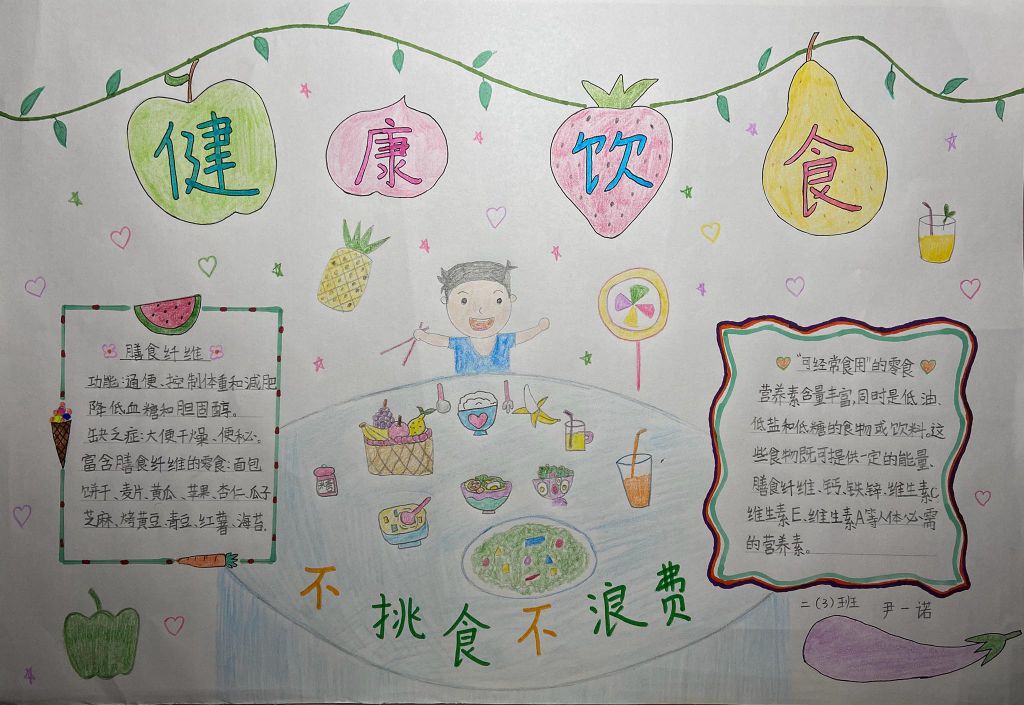 健康饮食
膳食纤维
功能：通便、控制体重和减肥
降低血糖和胆固醇。
缺乏症：大便干燥、便秘。
富含膳食纤维的零食：面包
饼干、麦片、黄瓜、苹果、杏仁、瓜子
芝麻、烤黄豆、青豆、红薯、海苔.
“可经常食用”的零食
营养素含量丰富,同时是低油、
低盐和低糖的食物或饮料。这
些食物既可提供一定的能量、
膳食纤维、钙、铁、锌、维生素C
维生素E、维生素A等人体必需
的营养素。
不挑食不浪费
二(3)班 尹一诺